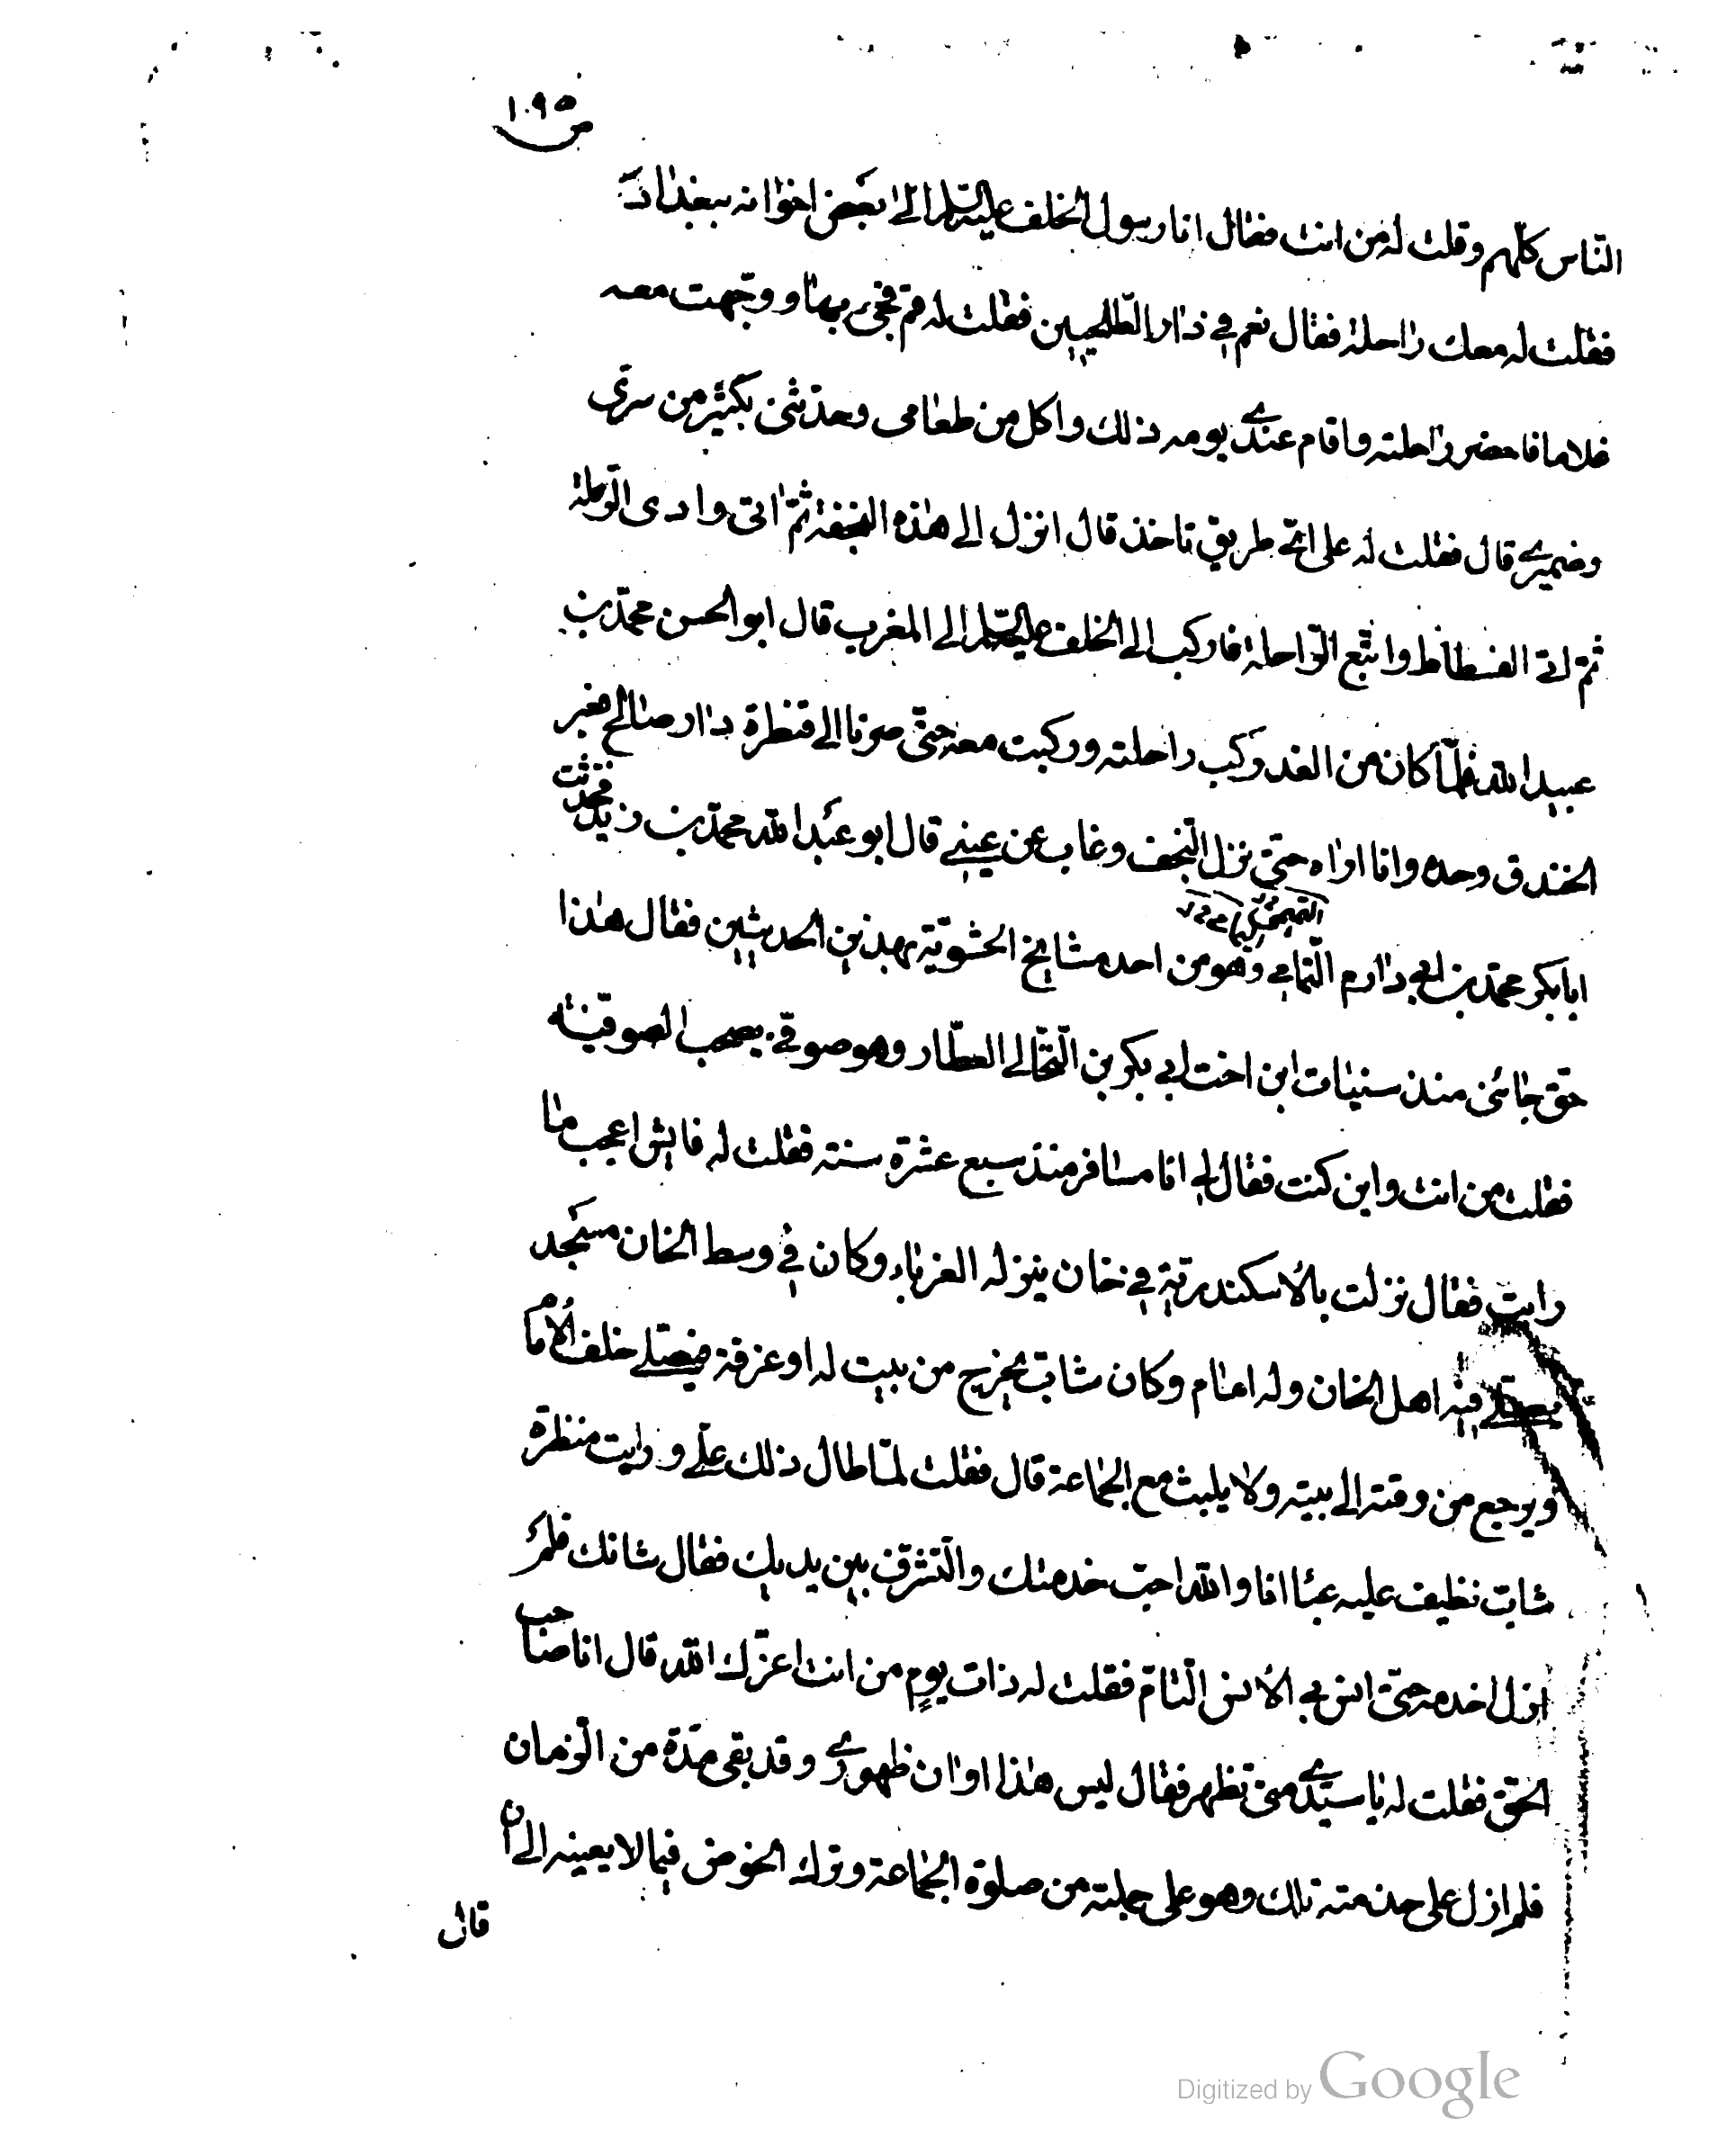 ١٠٩٥
ص
الناس كلهم وقلت له من انت فقال انا رسول الخلف عليه السلم الى بعض اخوانه ببغداد
فقلت له معك راحلة فقال نعم في دار الطلحيين فقلت له قم فجئ بها ووجهت معه
غلاما فاحضر راحلته واقام عندي يومه ذلك واكل من طعامى وحدثنى بكثير من سرى
وضميرى قال فقلت له على اى طريق تاخذ قال انزل الى هذه النجفة ثم اتى وادى الرملة
ثم اتى الفسطاط واتبع الراحلة فاركب الى الخلف عليه السلم الى المغرب قال ابو الحسن محمد بن
عبيد الله فلما كان من الغد ركب راحلته وركبت معه حتى صرنا الى قنطرة دار صالح فعبر
الخندق وحده وانا اراه حتى نزل النجف وغاب عن عينى قال ابو عبد الله محمد بن زيد فحدثت
ابا بكر محمد بن ابى دارم اليمامى وهو من احد مشايخ الحشوية بهذين الحديثين فقال هذا
حق جائنى منذ سنيات ابن اخت ابى بكر بن النخالى العطار وهو صوفى يصحب الصوفية
فقلت من انت واين كنت فقال لى انا مسافر منذ سبع عشرة سنة فقلت له فايش اعجب ما
رايت فقال نزلت بالاسكندرية في خان ينزله الغرباء وكان في وسط الخان مسجد
يصلى فيه اهل الخان وله امام وكان شاب يخرج من بيت له او غرفة فيصلى خلف الامام
ويرجع من وقته الى بيته ولا يلبث مع الجماعة قال فقلت لما طال ذلك على ورايت منظره
شاب نظيف عليه عبا انا والله احب خدمتك والتشرف بين يديك فقال شانك فلم
ازل اخدمه حتى انس بى الانس التام فقلت له ذات يوم من انت اعزك الله قال انا صاحب
الحق فقلت له يا سيدى متى تظهر فقال ليس هذا اوان ظهورى وقد بقى مدة من الزمان
فلم ازل على خدمته تلك وهو على حالته من صلوة الجماعة وترك الخوض فيما لا يعنيه الى ان
قال
Digitized by Google